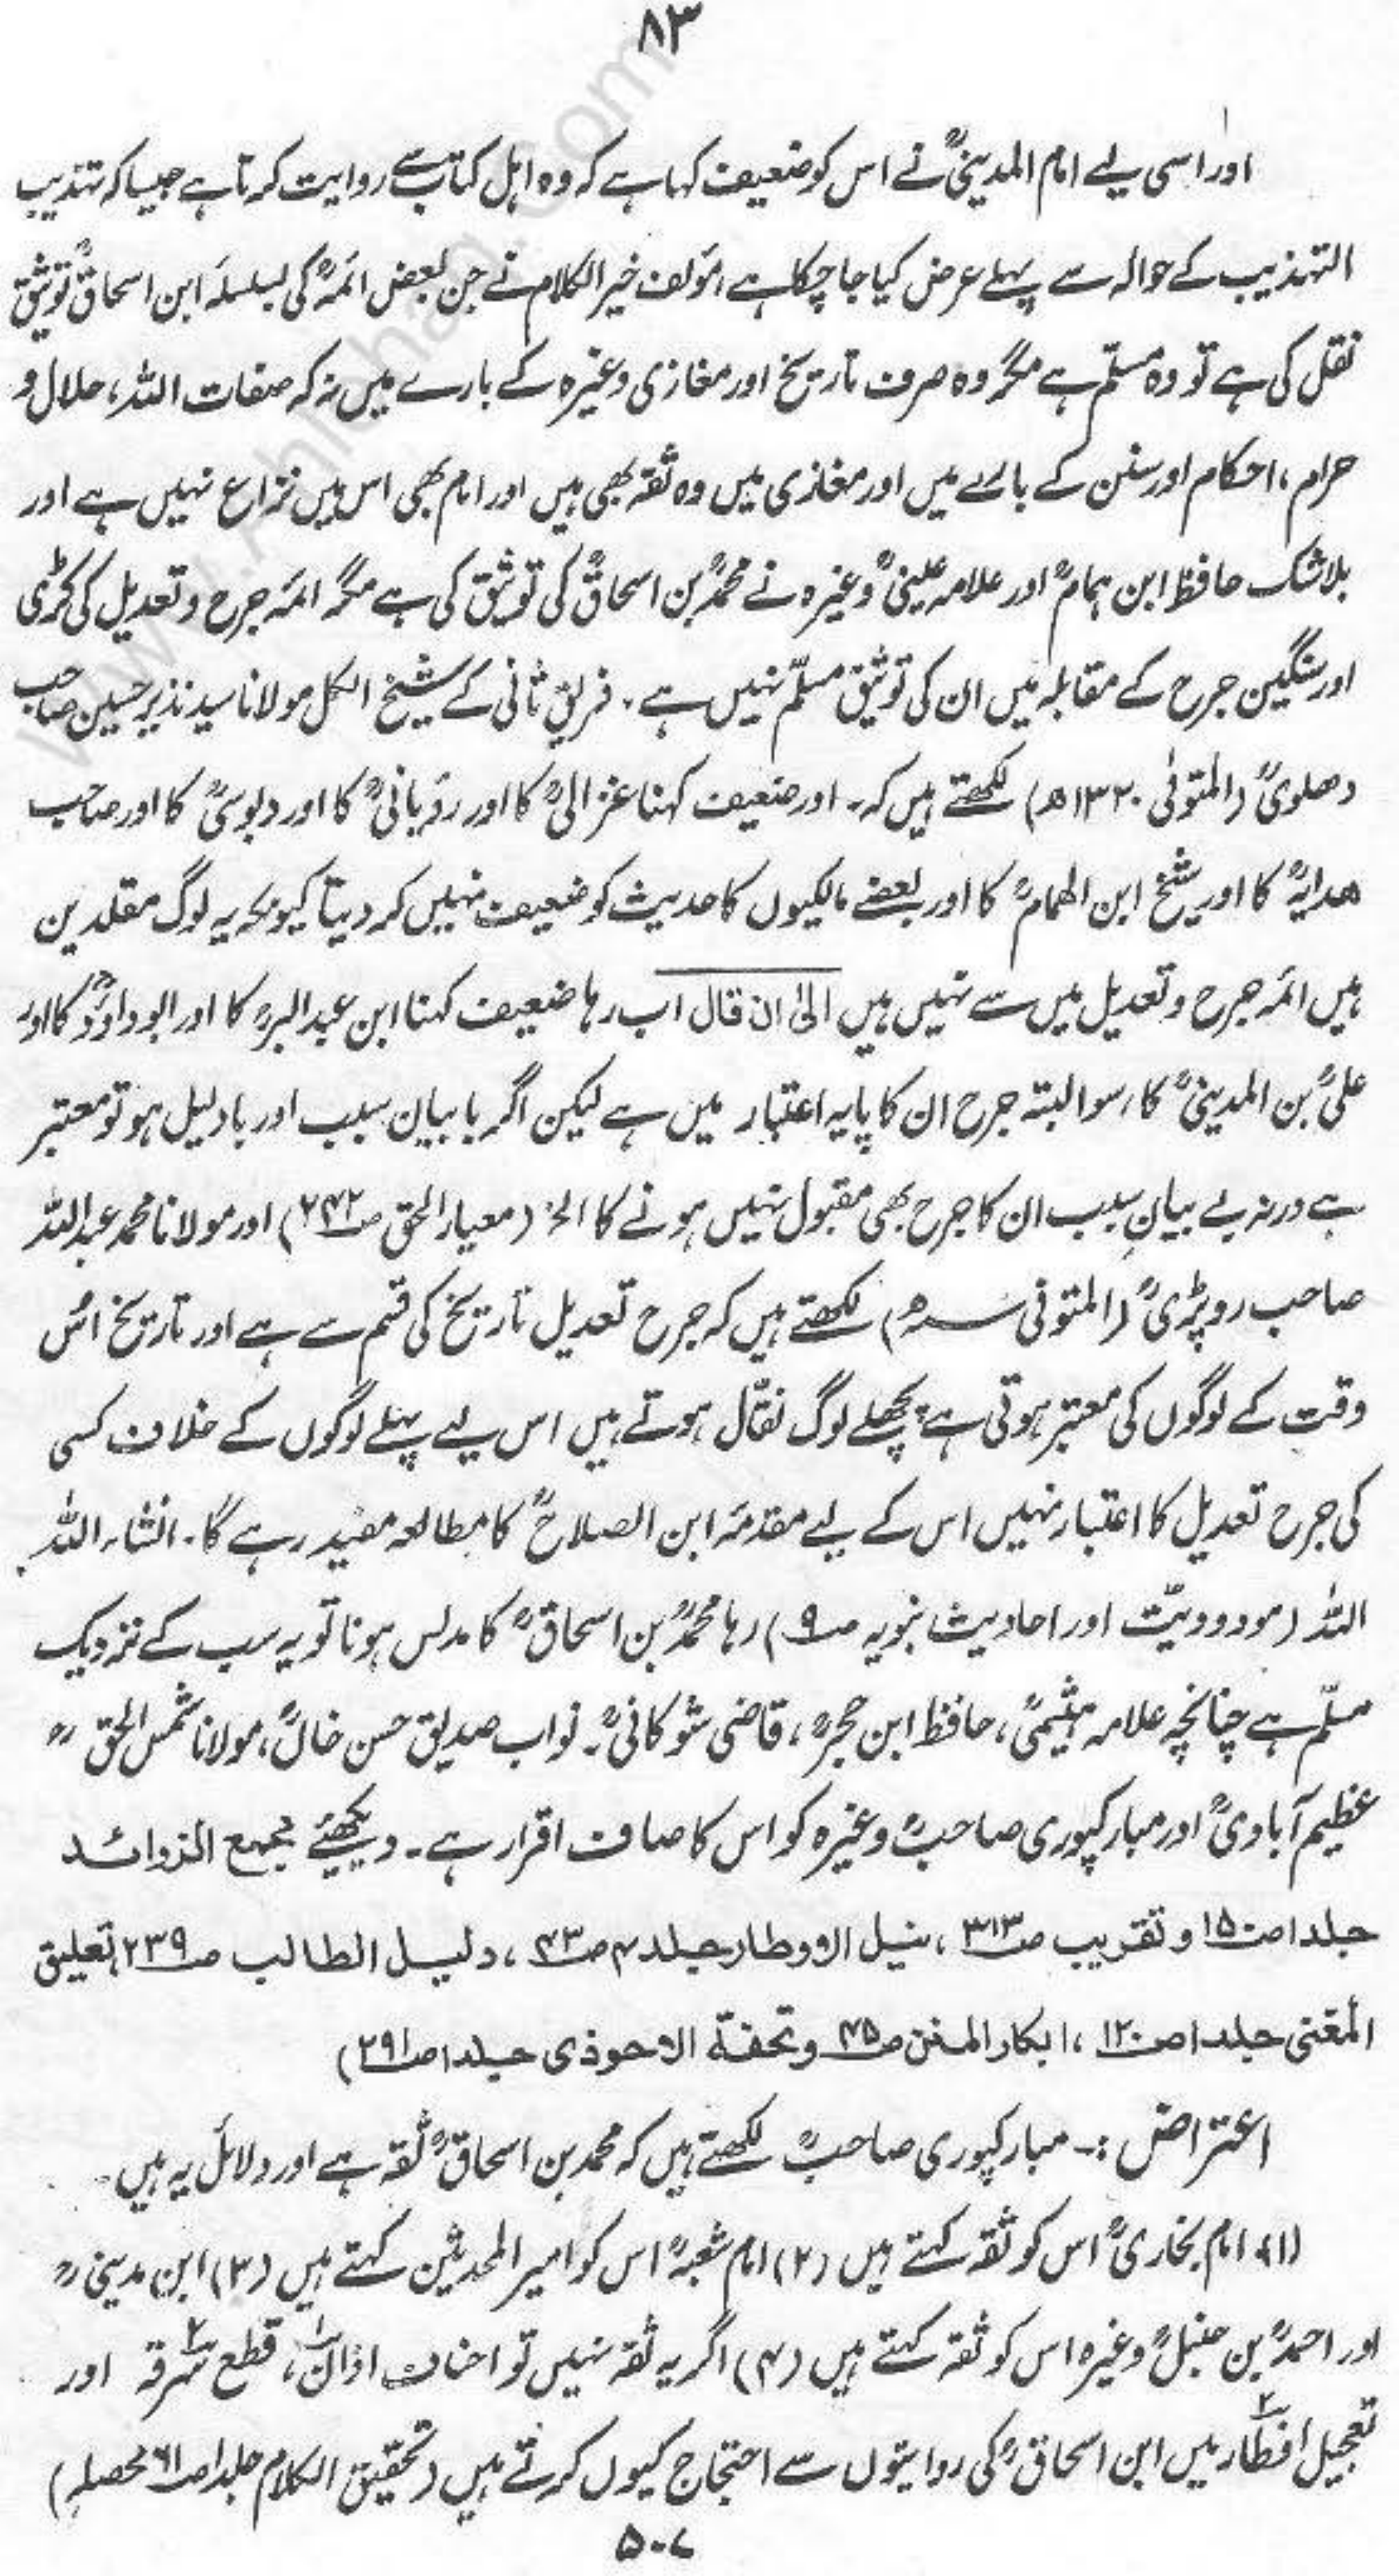 ۸۳
اور اسی لیے امام المدینیؒ نے اس کو ضعیف کہا ہے کہ وہ اہل کتاب سے روایت کرتا ہے جیسا کہ تہذیب
التہذیب کے حوالہ سے پہلے عرض کیا جا چکا ہے، مؤلف خیر الکلام نے جن بعض ائمہؒ کی بسلسلہ ابن اسحاقؒ توثیق
نقل کی ہے تو وہ مسلّم ہے مگر وہ صرف تاریخ اور مغازی وغیرہ کے بارے میں نہ کہ صفات اللہ، حلال و
حرام، احکام اور سنن کے بارے میں اور مغازی میں وہ ثقہ بھی ہیں اور امام بھی اس میں نزاع نہیں ہے اور
بلاشک حافظ ابن ہمامؒ اور علامہ عینیؒ وغیرہ نے محمدؒ بن اسحاقؒ کی توثیق کی ہے مگر ائمہ جرح و تعدیل کی کڑی
اور سنگین جرح کے مقابلہ میں ان کی توثیق مسلّم نہیں ہے۔ فریق ثانی کے شیخ الکل مولانا سید نذیر حسین صاحب
دھلویؒ (المتوفٰی ۱۳۲۰ھ) لکھتے ہیں کہ۔ اور ضعیف کہنا غزالیؒ کا اور رؤیانیؒ کا اور دبوسیؒ کا اور صاحب
ھدایہؒ کا اور شیخ ابن الھمامؒ کا اور بعضے مالکیوں کا حدیث کو ضعیف نہیں کر دیتا کیونکہ یہ لوگ مقلدین
ہیں ائمہ جرح و تعدیل میں سے نہیں ہیں الیٰ ان قال اب رہا ضعیف کہنا ابن عبد البرؒ کا اور ابو داؤدؒ کا اور
علیؒ بن المدینیؒ کا، سو البتہ جرح ان کا پایہ اعتبار میں ہے لیکن اگر با بیان سبب اور با دلیل ہو تو معتبر
ہے ورنہ بے بیانِ سبب ان کا جرح بھی مقبول نہیں ہونے کا الخ (معیار الحق ص۲۴۲) اور مولانا محمد عبد اللہ
صاحب روپڑیؒ (المتوفی ھ) لکھتے ہیں کہ جرح تعدیل تاریخ کی قسم سے ہے اور تاریخ اسُ
وقت کے لوگوں کی معتبر ہوتی ہے، پچھلے لوگ نقّال ہوتے ہیں اس لیے پہلے لوگوں کے خلاف کسی
کی جرح تعدیل کا اعتبار نہیں اس کے لیے مقدمہ ابن الصلاحؒ کا مطالعہ مفید رہے گا۔ انشاء اللہ
اللہ (مودودیّت اور احادیث نبویہ ص۹) رہا محمدؒ بن اسحاقؒ کا مدلس ہونا تو یہ سب کے نزدیک
مسلّم ہے چنانچہ علامہ ہیثمیؒ، حافظ ابن حجرؒ، قاضی شوکانیؒ۔ نواب صدیق حسن خاںؒ، مولانا شمس الحقؒ
عظیم آبادیؒ اور مبارکپوری صاحبؒ وغیرہ کو اس کا صاف اقرار ہے۔ دیکھئے مجمع الزوائد
جلد۱ ص۱۵۰ و تقریب ص۳۱۳، نیل الاوطار جلد۴ ص۴۳، دلیل الطالب ص۲۳۹، تعلیق
المغنی جلد۱ ص۱۲۰، ابکار المنن ص۴۵ و تحفۃ الاحوذی جلد۱ ص۲۹۱)
اعتراض :- مبارکپوری صاحبؒ لکھتے ہیں کہ محمد بن اسحاقؒ ثقہ ہے اور دلائل یہ ہیں۔
(۱) امام بخاریؒ اس کو ثقہ کہتے ہیں (۲) امام شعبہؒ اس کو امیر المحدثین کہتے ہیں (۳) ابن مدینیؒ
اور احمدؒ بن حنبلؒ وغیرہ اس کو ثقہ کہتے ہیں (۴) اگر یہ ثقہ نہیں تو احناف اذان۱، قطع سرقہ۲ اور
تعجیل افطار میں ابن اسحاقؒ کی روایتوں سے احتجاج کیوں کرتے ہیں (تحقیق الکلام جلد۱ ص۶۱ محصلہ)
۵۰۷